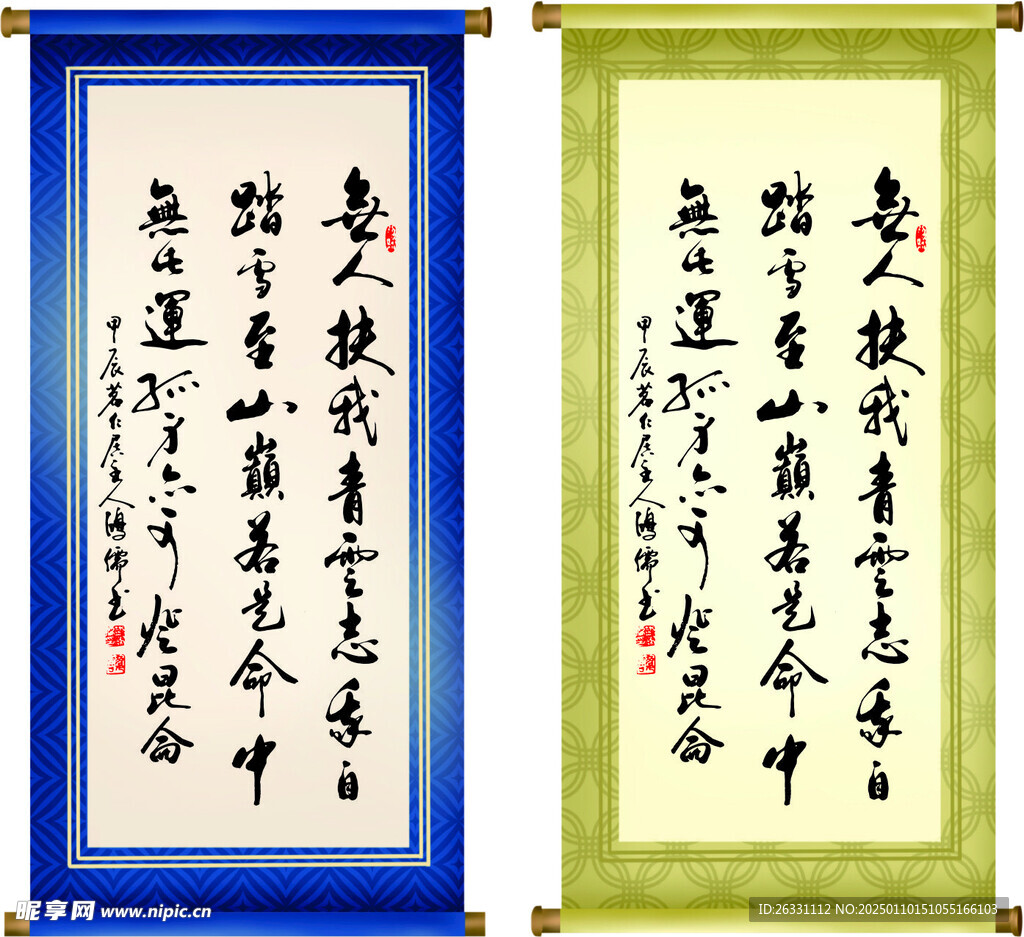 無人扶我青雲志我自
踏雪至山巔若是命中
無此運孤身亦可登昆侖
甲辰茗仁居主人鴻儒书
無人扶我青雲志我自
踏雪至山巔若是命中
無此運孤身亦可登昆侖
甲辰茗仁居主人鴻儒书
昵享网 www.nipic.cn
ID:26331112 NO:20250110151055166103